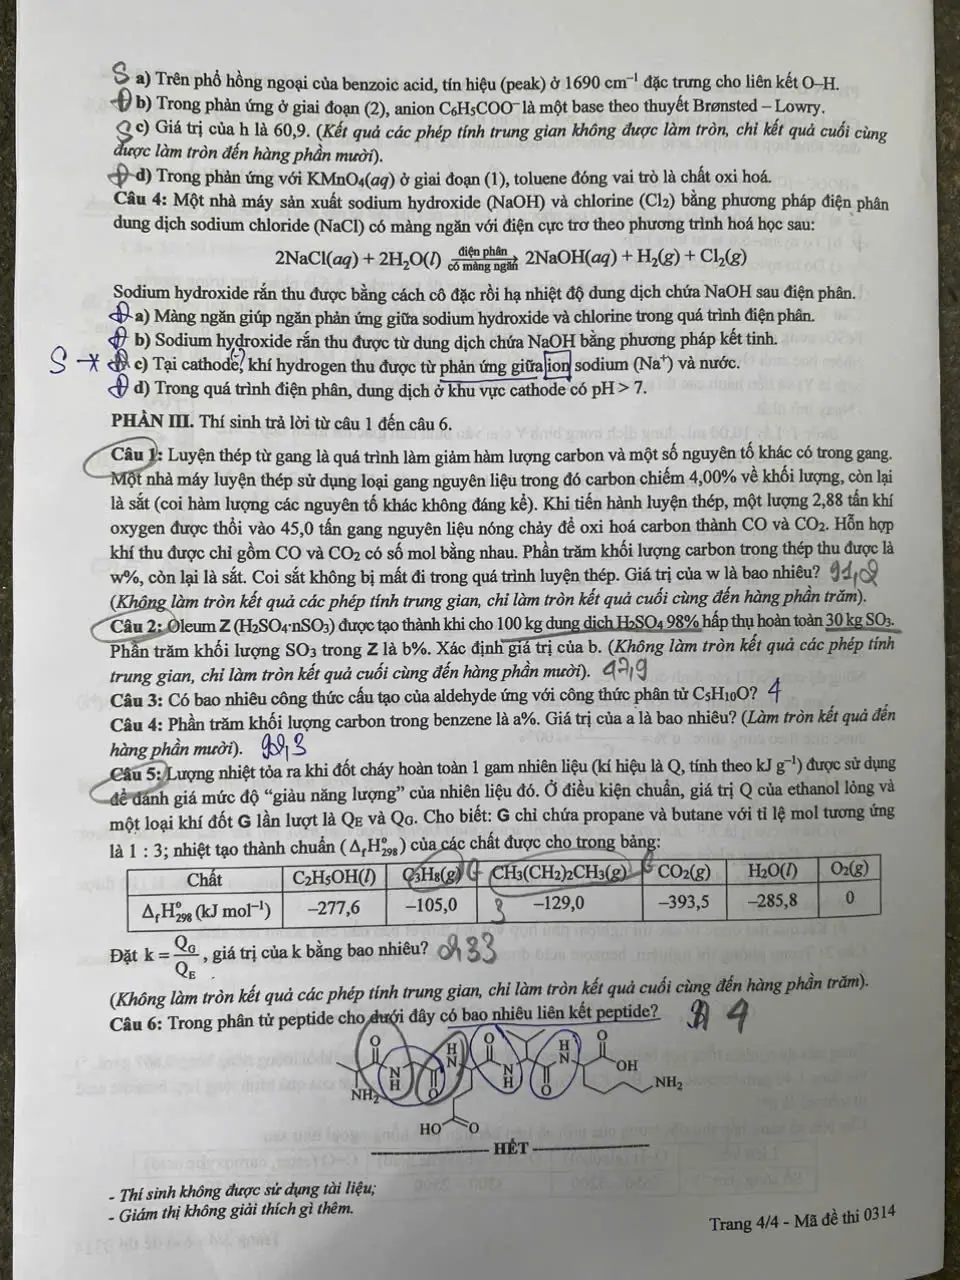 S a) Trên phổ hồng ngoại của benzoic acid, tín hiệu (peak) ở 1690 cm⁻¹ đặc trưng cho liên kết O–H.
Đ b) Trong phản ứng ở giai đoạn (2), anion C₆H₅COO⁻ là một base theo thuyết Brønsted – Lowry.
S c) Giá trị của h là 60,9. (Kết quả các phép tính trung gian không được làm tròn, chỉ kết quả cuối cùng
được làm tròn đến hàng phần mười).
Đ d) Trong phản ứng với KMnO₄(aq) ở giai đoạn (1), toluene đóng vai trò là chất oxi hoá.
Câu 4: Một nhà máy sản xuất sodium hydroxide (NaOH) và chlorine (Cl₂) bằng phương pháp điện phân
dung dịch sodium chloride (NaCl) có màng ngăn với điện cực trơ theo phương trình hoá học sau:
2NaCl(aq) + 2H₂O(l) điện phân có màng ngăn → 2NaOH(aq) + H₂(g) + Cl₂(g)
Sodium hydroxide rắn thu được bằng cách cô đặc rồi hạ nhiệt độ dung dịch chứa NaOH sau điện phân.
Đ a) Màng ngăn giúp ngăn phản ứng giữa sodium hydroxide và chlorine trong quá trình điện phân.
Đ b) Sodium hydroxide rắn thu được từ dung dịch chứa NaOH bằng phương pháp kết tinh.
S c) Tại cathode, (-) khí hydrogen thu được từ phản ứng giữa ion sodium (Na⁺) và nước.
Đ d) Trong quá trình điện phân, dung dịch ở khu vực cathode có pH > 7.
PHẦN III. Thí sinh trả lời từ câu 1 đến câu 6.
Câu 1: Luyện thép từ gang là quá trình làm giảm hàm lượng carbon và một số nguyên tố khác có trong gang.
Một nhà máy luyện thép sử dụng loại gang nguyên liệu trong đó carbon chiếm 4,00% về khối lượng, còn lại
là sắt (coi hàm lượng các nguyên tố khác không đáng kể). Khi tiến hành luyện thép, một lượng 2,88 tấn khí
oxygen được thổi vào 45,0 tấn gang nguyên liệu nóng chảy để oxi hoá carbon thành CO và CO₂. Hỗn hợp
khí thu được chỉ gồm CO và CO₂ có số mol bằng nhau. Phần trăm khối lượng carbon trong thép thu được là
w%, còn lại là sắt. Coi sắt không bị mất đi trong quá trình luyện thép. Giá trị của w là bao nhiêu?
(Không làm tròn kết quả các phép tính trung gian, chỉ làm tròn kết quả cuối cùng đến hàng phần trăm).
Câu 2: Oleum Z (H₂SO₄·nSO₃) được tạo thành khi cho 100 kg dung dịch H₂SO₄ 98% hấp thụ hoàn toàn 30 kg SO₃.
Phần trăm khối lượng SO₃ trong Z là b%. Xác định giá trị của b. (Không làm tròn kết quả các phép tính
trung gian, chỉ làm tròn kết quả cuối cùng đến hàng phần mười). 47,9
Câu 3: Có bao nhiêu công thức cấu tạo của aldehyde ứng với công thức phân tử C₅H₁₀O? 4
Câu 4: Phần trăm khối lượng carbon trong benzene là a%. Giá trị của a là bao nhiêu? (Làm tròn kết quả đến
hàng phần mười).
Câu 5: Lượng nhiệt tỏa ra khi đốt cháy hoàn toàn 1 gam nhiên liệu (kí hiệu là Q, tính theo kJ g⁻¹) được sử dụng
để đánh giá mức độ “giàu năng lượng” của nhiên liệu đó. Ở điều kiện chuẩn, giá trị Q của ethanol lỏng và
một loại khí đốt G lần lượt là Q_E và Q_G. Cho biết: G chỉ chứa propane và butane với tỉ lệ mol tương ứng
là 1 : 3; nhiệt tạo thành chuẩn (Δ_fH°₂₉₈) của các chất được cho trong bảng:
Chất C₂H₅OH(l) C₃H₈(g) CH₃(CH₂)₂CH₃(g) CO₂(g) H₂O(l) O₂(g)
Δ_fH°₂₉₈ (kJ mol⁻¹) –277,6 –105,0 3 –129,0 –393,5 –285,8 0
Đặt k = Q_G/Q_E, giá trị của k bằng bao nhiêu?
(Không làm tròn kết quả các phép tính trung gian, chỉ làm tròn kết quả cuối cùng đến hàng phần trăm).
Câu 6: Trong phân tử peptide cho dưới đây có bao nhiêu liên kết peptide? 4
O H N O H N O
NH₂ N H O N H O OH NH₂
HO O
HẾT
- Thí sinh không được sử dụng tài liệu;
- Giám thị không giải thích gì thêm.
Trang 4/4 - Mã đề thi 0314